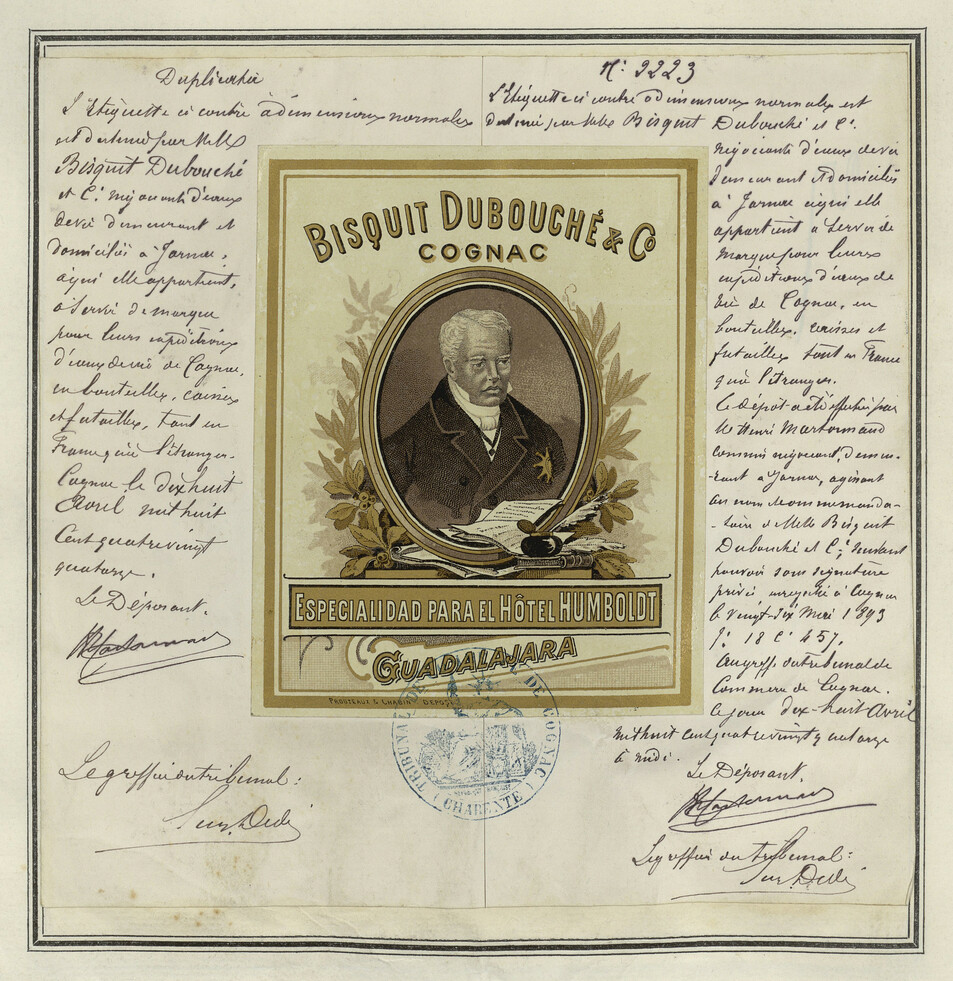 Duplicata
L'Etiquette ci contre à dimensions normales
est destinée par MM
Bisquit Dubouché
et Cie négociants d'eaux
de vie demeurant et
domiciliés à Jarnac,
à qui elle appartient,
à servir de marque
pour leurs expéditions
d'eaux de vie de Cognac,
en bouteilles, caisses
et futailles, tant en
France qu'à l'étranger.
Cognac le dix huit
Avril mil huit
Cent quatre vingt
quatorze.
Le Déposant.
Le greffier du tribunal:
N° 2223
L'Etiquette ci contre à dimensions normales est
destinée par MM Bisquit Dubouché et Cie
négociants d'eaux de vie
demeurant et domiciliés
à Jarnac à qui elle
appartient à servir de
marque pour leurs
expéditions d'eaux de
vie de Cognac, en
bouteilles, caisses et
futailles tant en France
qu'à l'étranger.
Le dépôt a été effectué par
Mr Henri Martormaud
commis négociant, demeu-
-rant à Jarnac, agissant
au nom et comme manda-
-taire de MM Bisquit
Dubouché et Cie, suivant
pouvoir sous signature
privée enregistré à Cognac
le vingt-dix Mai 1893
fo 18 Co 457.
Au greffe du tribunal de
Commerce de Cognac.
Ce jour dix-huit Avril
mil huit cent quatre vingt quatorze
à midi.
Le Déposant.
Le greffier du tribunal:
BISQUIT DUBOUCHÉ & Co
COGNAC
ESPECIALIDAD PARA EL HÔTEL HUMBOLDT
GUADALAJARA
PROUTEAUX & CHABIN DEPOSÉ
TRIBUNAL DE COGNAC
(CHARENTE)